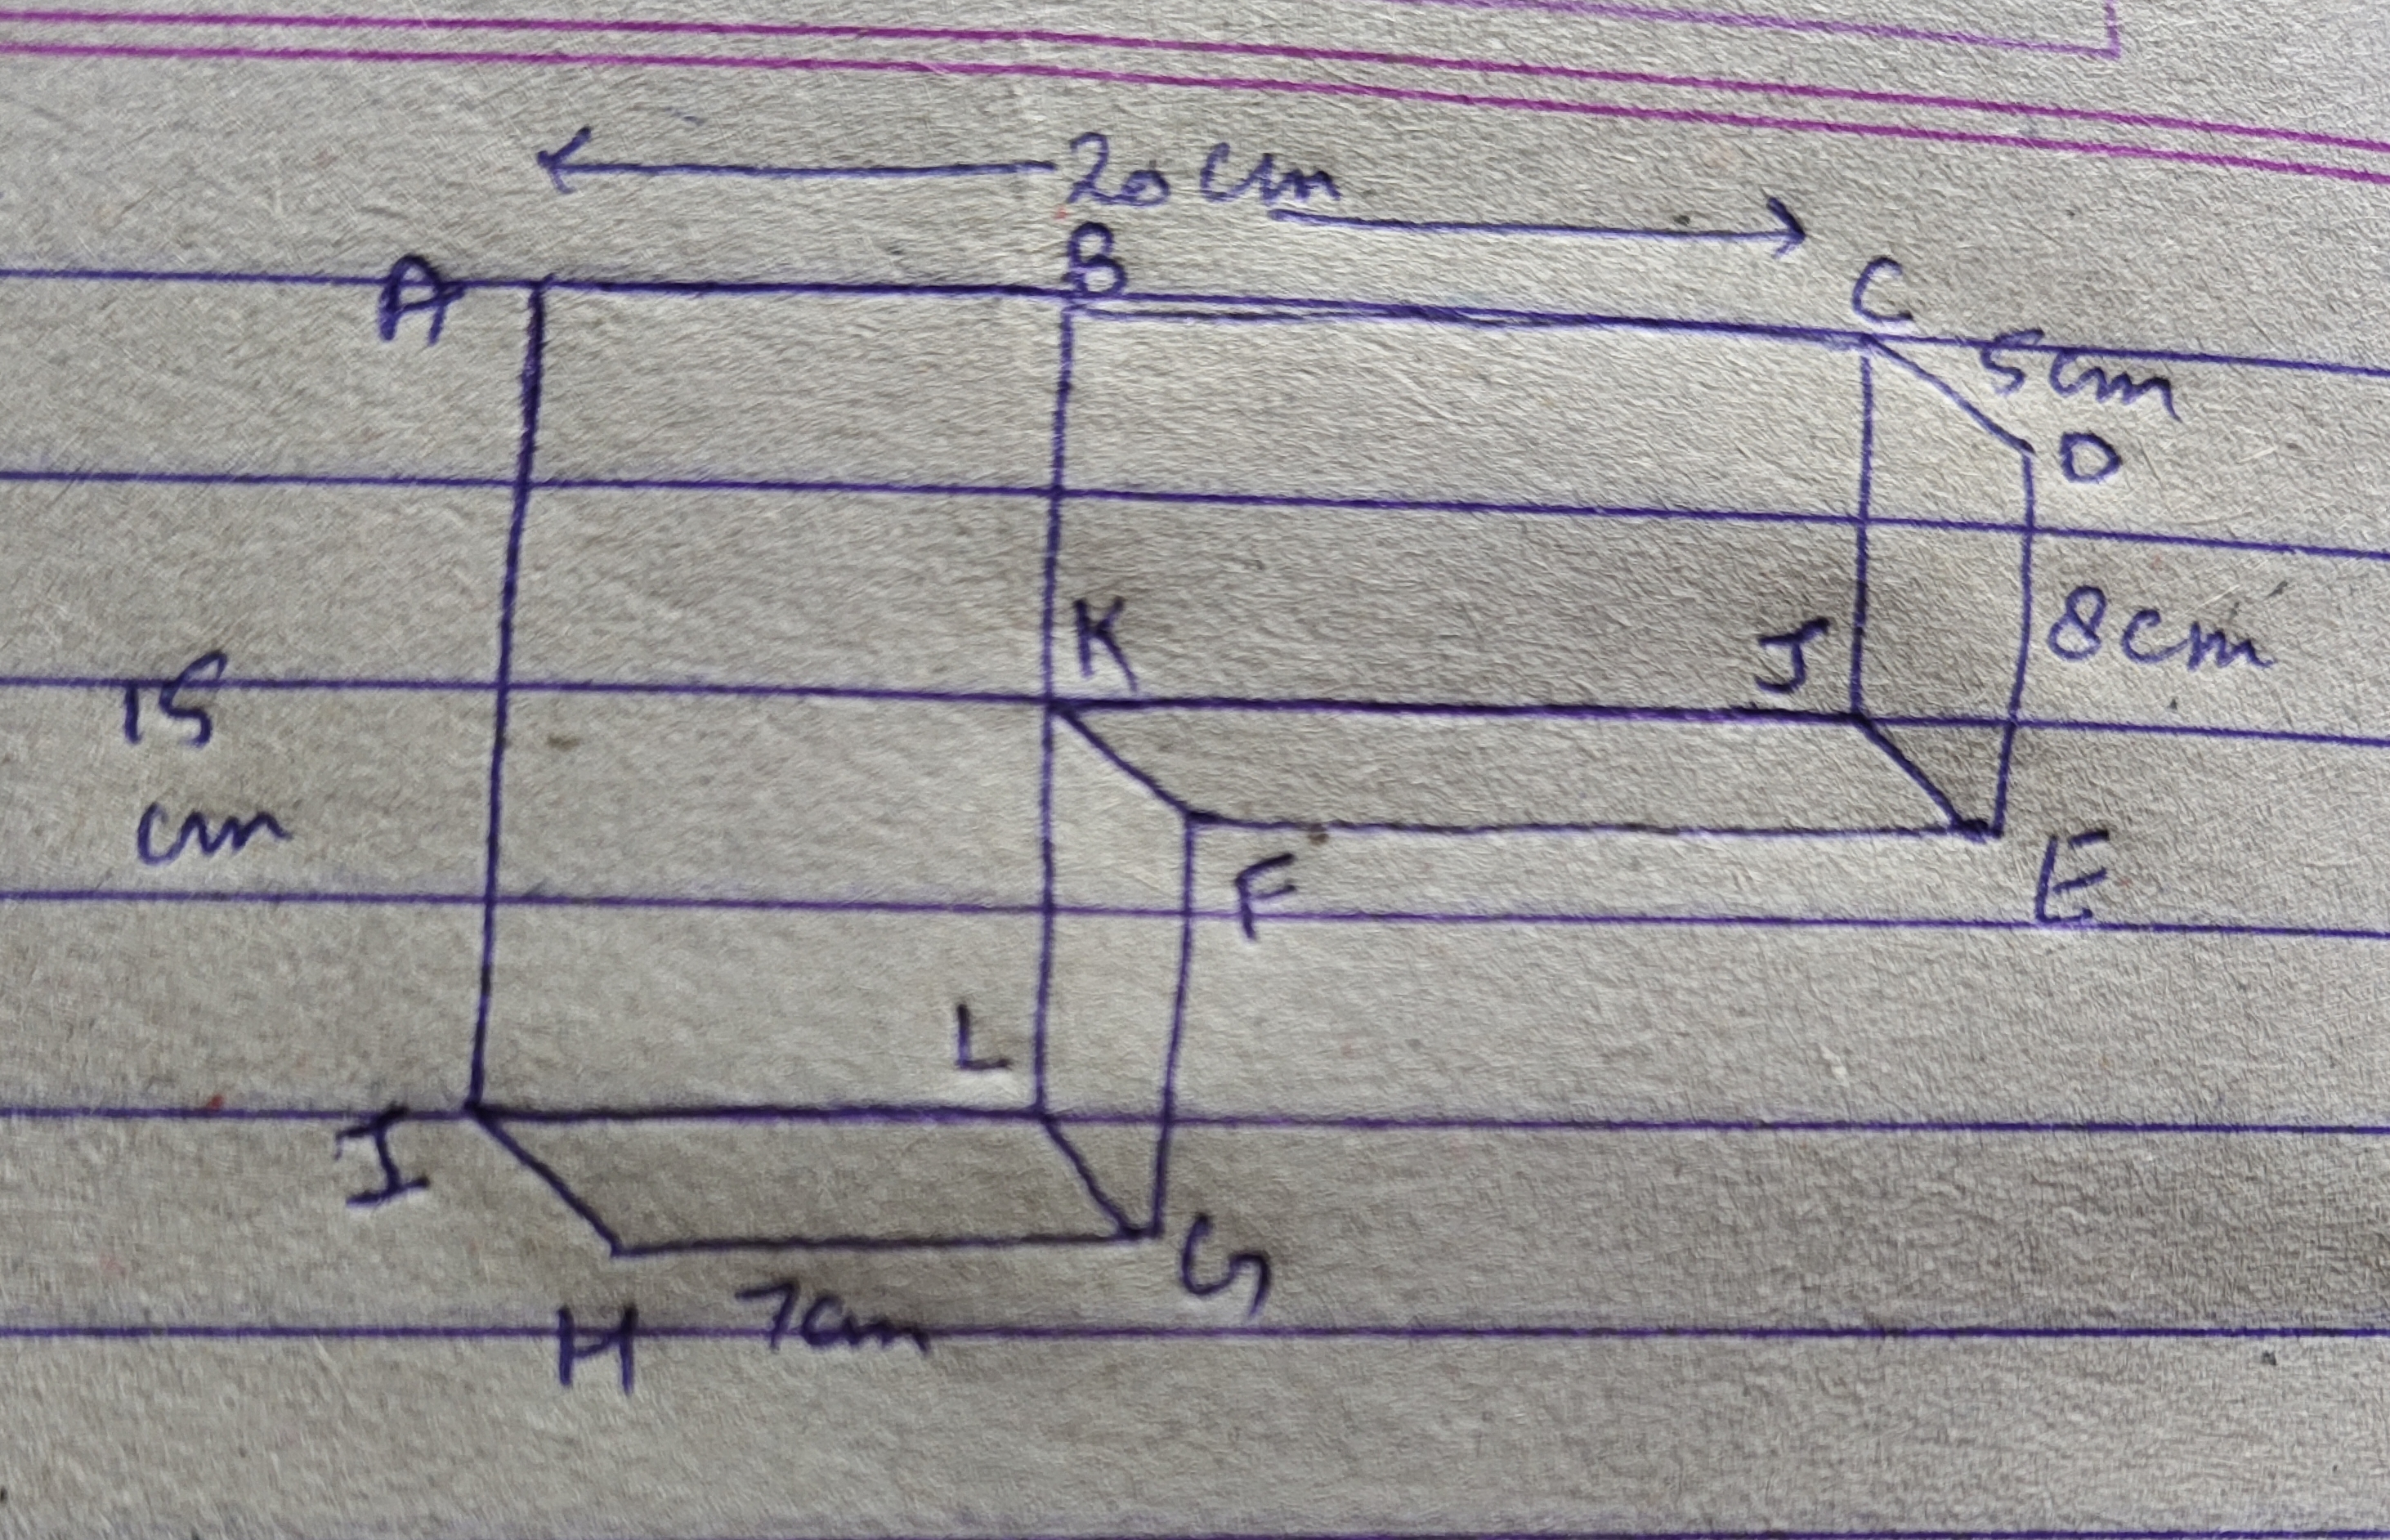 20 cm
B
A
C
5cm
D
K
J
8cm
15
cm
F
E
L
I
G
H
7cm